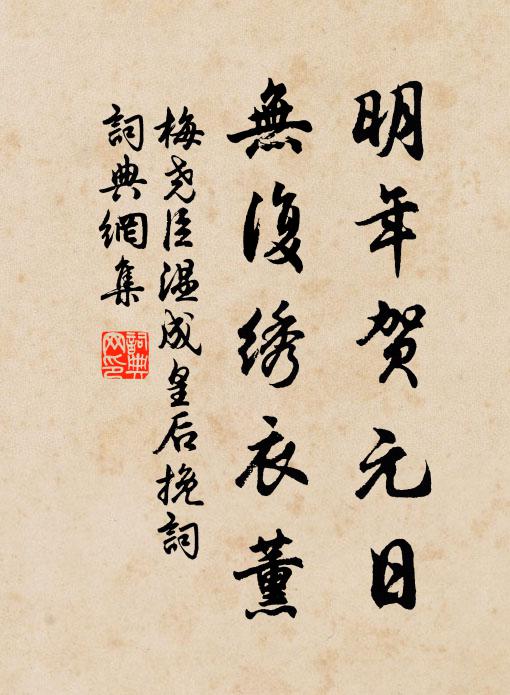 明年贺元日
無復绣衣薰
梅尧臣温成皇后挽詞
詞典網集
詞典网印